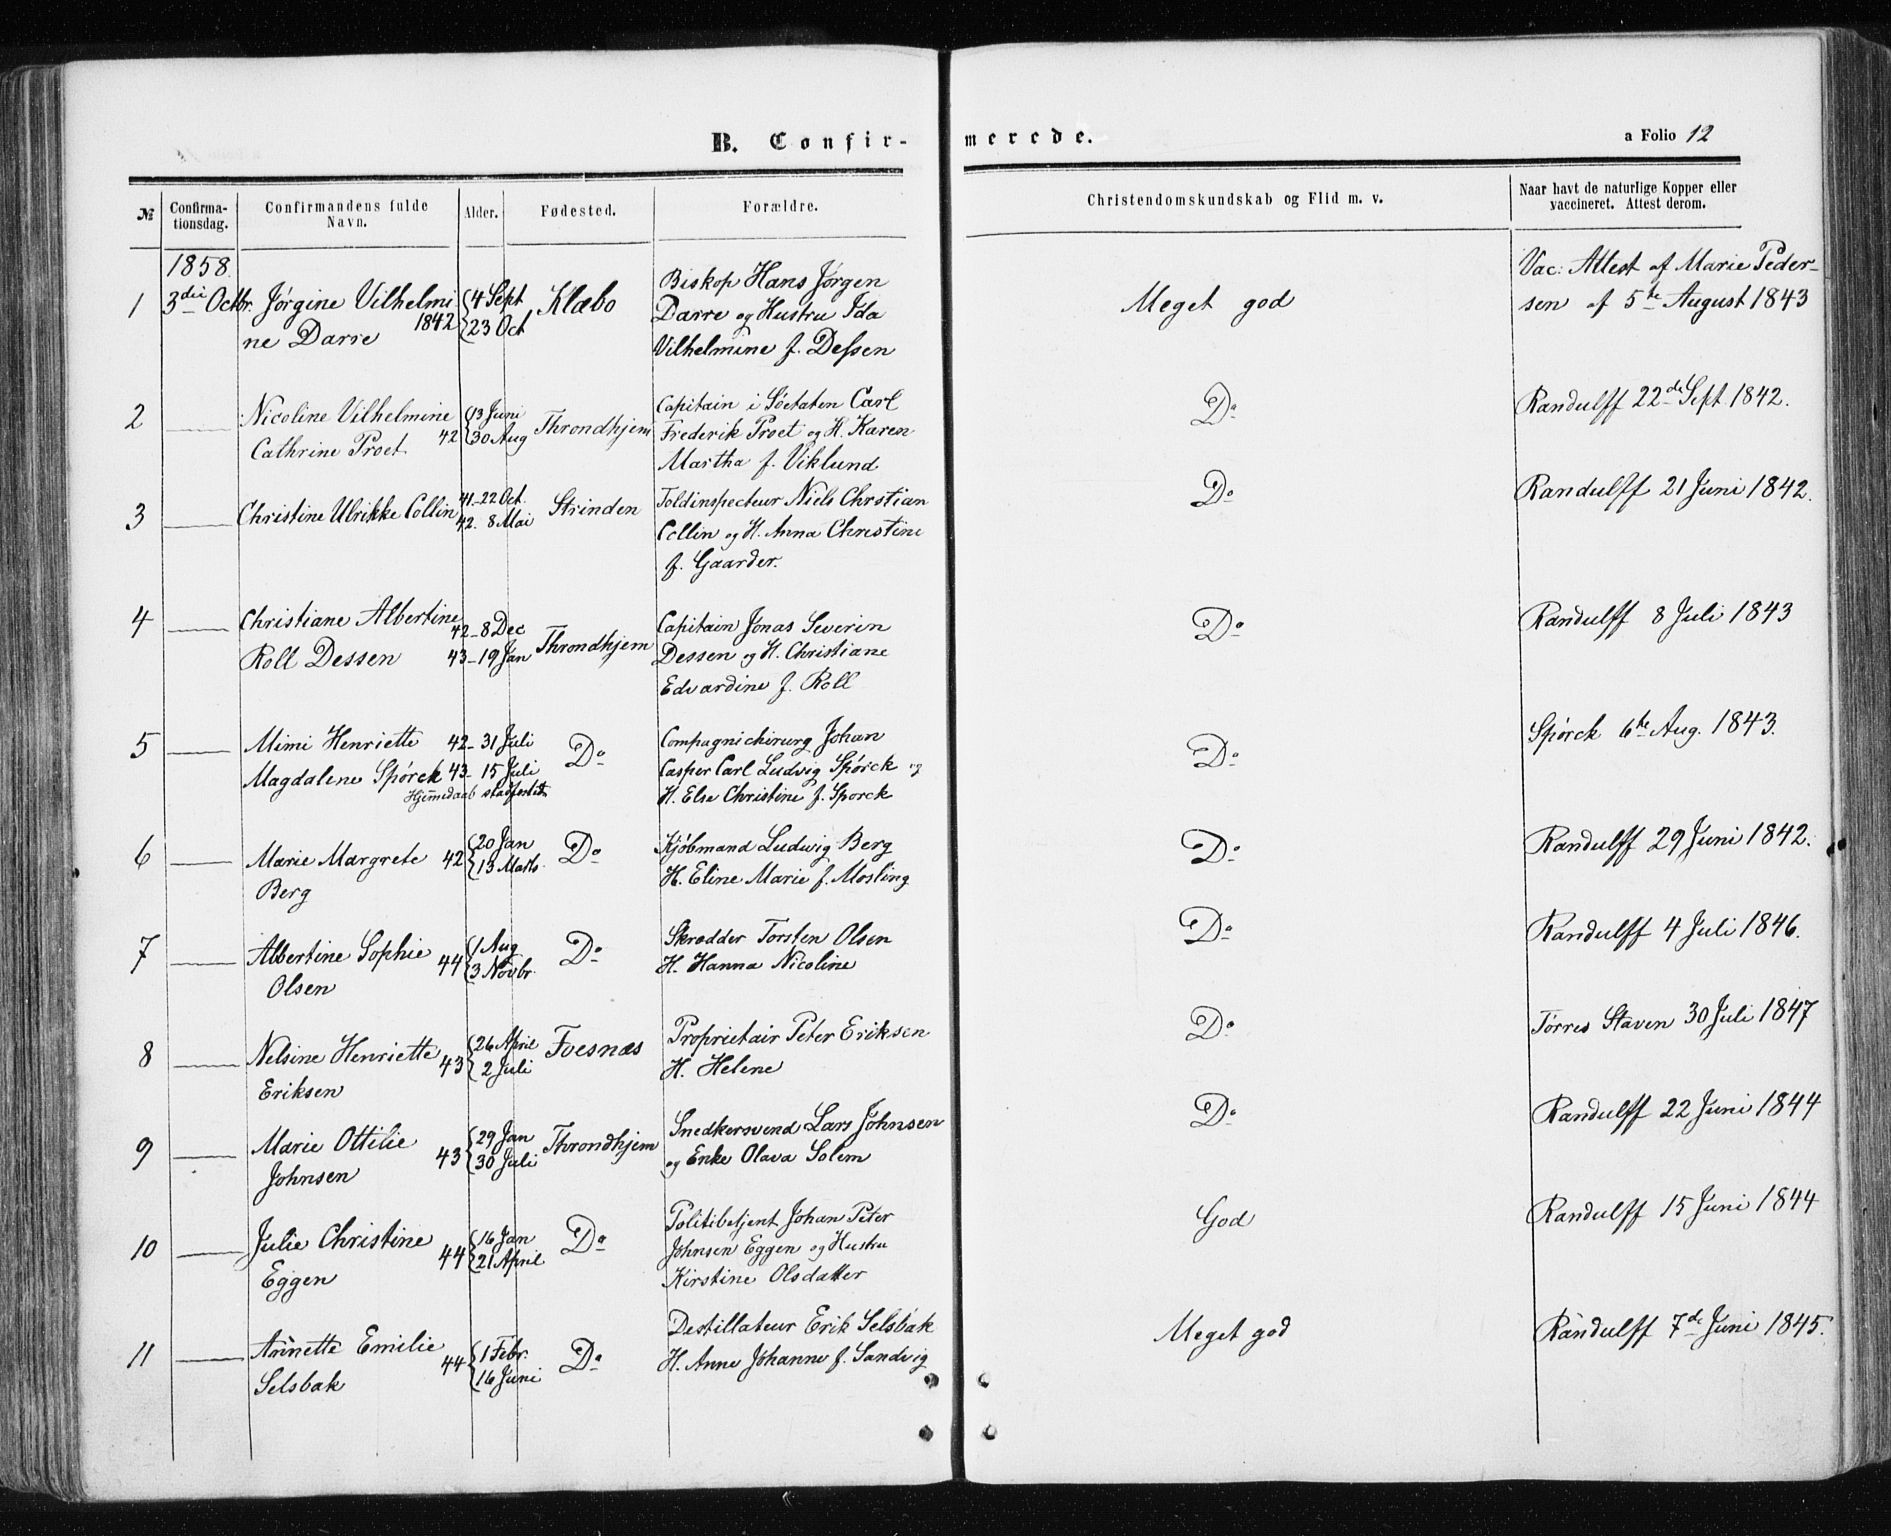 B. Confir- merede.
a Folio 12
№
Confirma-
tionsdag.
Confirmandens fulde
Navn.
Alder.
Fødested.
Forældre.
Christendomskundskab og Flid m. v.
Naar havt de naturlige Kopper eller
vaccineret. Attest derom.
1858.
1
3die Octbr.
Jørgine Vilhelmi
ne Darre
1842
4 Sept
23 Oct
Klæbo
Biskop Hans Jørgen
Darre og Hustru Ida
Vilhelmine f. Dessen
Meget god
Vac: Attest af Marie Peder-
sen af 5te August 1843
2
Nicoline Vilhelmine
Cathrine Proet
42
13 Juni
30 Aug
Throndhjem
Capitain i Søetaten Carl
Frederik Proet og H. Karen
Martha f. Viklund
Do
Randulff 22de Sept 1842.
3
Christine Ulrikke Collin
41-22 Oct.
42. 8 Mai
Strinden
Toldinspecteur Niels Chrstian
Collin og H. Anna Christine
f. Gaarder.
Do
Randulff 21 Juni 1842.
4
Christiane Albertine
Roll Dessen
42-8 Dec
43-19 Jan
Throndhjem
Capitain Jonas Severin
Dessen og H. Christiane
Edvardine f. Roll
Do
Randulff 8 Juli 1843
5
Mimi Henriette
Magdalene Spørck
42-31 Juli
43-15 Juli
Hjemedaab stadfestet
Do
Compagnichirurg Johan
Casper Carl Ludvig Spørck og
H. Else Christine f. Sporck
Do
Spørck 6te Aug. 1843.
6
Marie Margrete
Berg
42
20 Jan
13 Marts
Do
Kjøbmand Ludwig Berg
H. Eline Marie f. Mosling
Do
Randulff 29 Juni 1842.
7
Albertine Sophie
Olsen
44
1 Aug
3 Novbr.
Do
Skrædder Torsten Olsen
H. Hanna Nicoline
Do
Randulff 4 Juli 1846.
8
Nelsine Henriette
Eriksen
43
26 April
2 Juli
Foesnæs
Proprietair Peter Eriksen
H. Helene
Do
Torres Staven 30 Juli 1847
9
Marie Ottilie
Johnsen
43
29 Jan
30 Juli
Throndhjem
Snedkersvend Lars Johnsen
og Enke Olava Solem
Do
Randulff 22 Juni 1844
10
Julie Christine
Eggen
44
16 Jan
21 April
Do
Politibetjent Johan Peter
Johnsen Eggen og Hustru
Kirstine Olsdatter
God
Randulff 15 Juni 1844
11
Annette Emilie
Selsbak
44
1 Febr.
16 Juni
Do
Destillateur Erik Selsbak
H. Anne Johanne f. Sandvig
Meget god
Randulff 7de Juni 1845.